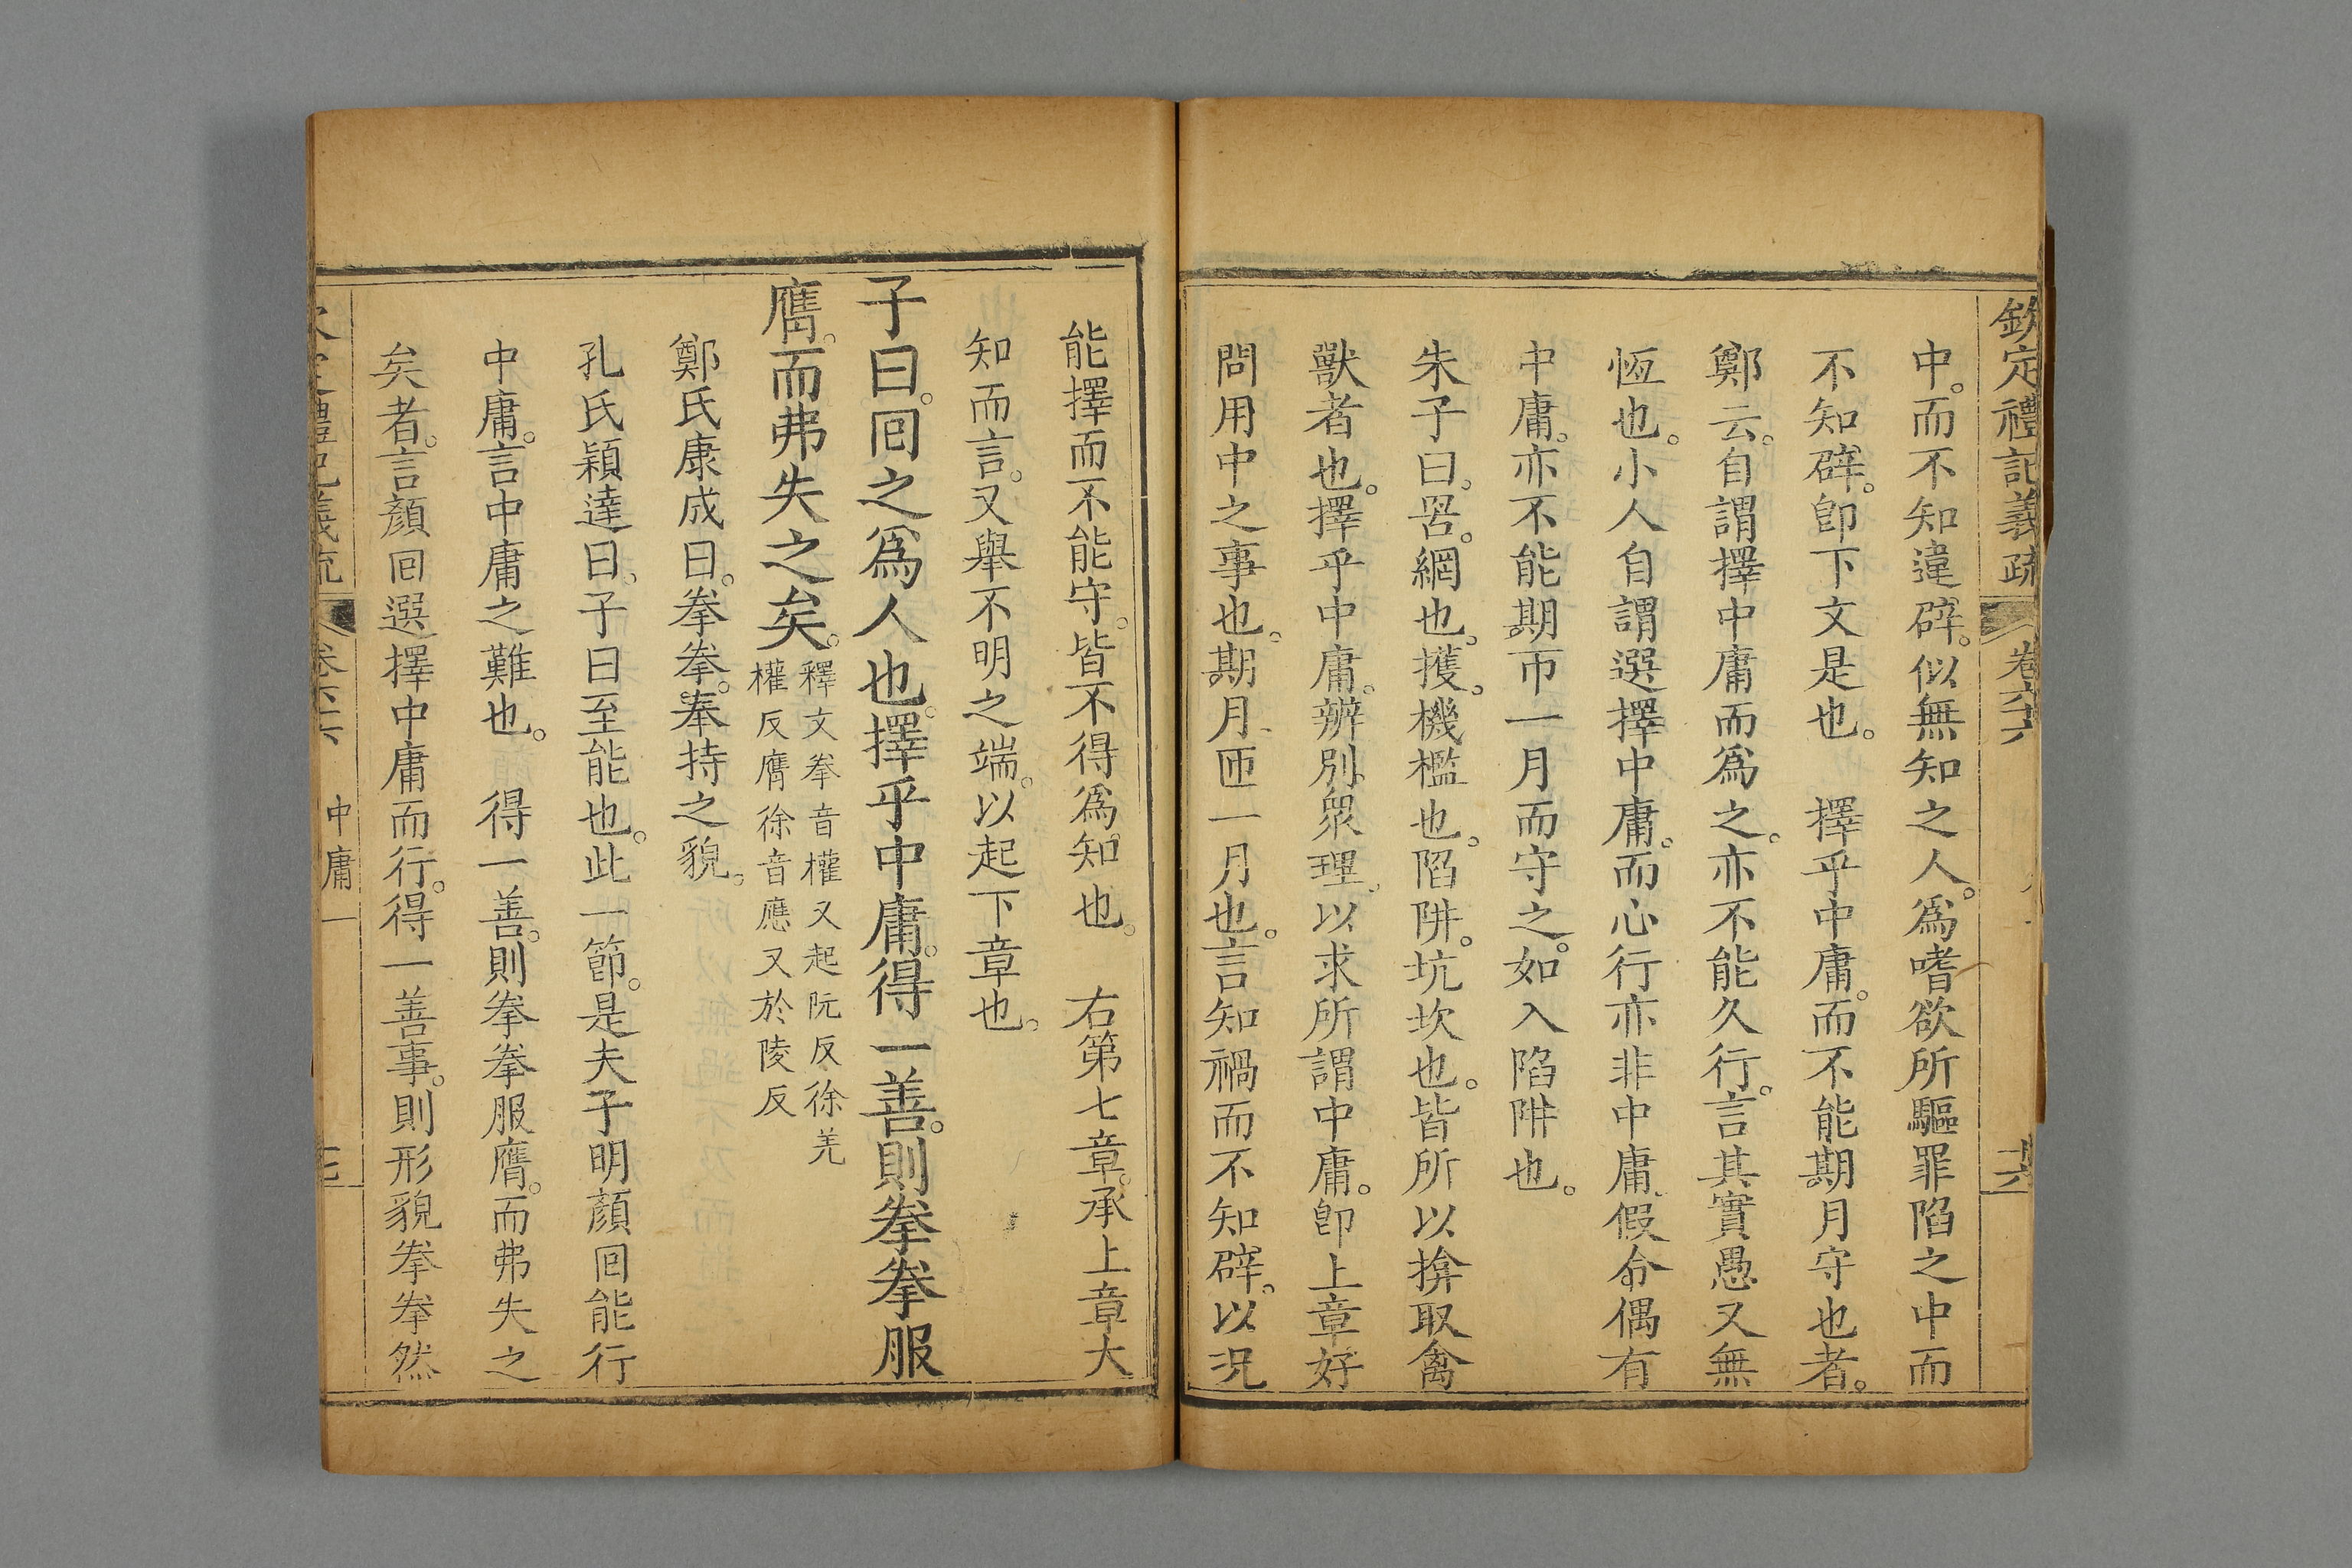 欽定禮記義疏 卷六十六 十六
中。而不知違辟。似無知之人。爲嗜欲所驅罪陷之中而
不知辟。卽下文是也。 擇乎中庸。而不能期月守也者。
鄭云。自謂擇中庸而爲之。亦不能久行。言其實愚又無
恆也。小人自謂選擇中庸。而心行亦非中庸。假令偶有
中庸。亦不能期帀一月而守之。如入陷阱也。
朱子曰。罟。網也。擭。機檻也。陷阱。坑坎也。皆所以揜取禽
獸者也。擇乎中庸。辨別衆理。以求所謂中庸。卽上章好
問用中之事也。期月。匝一月也。言知禍而不知辟。以況
能擇而不能守。皆不得爲知也。 右第七章。承上章大
知而言。又舉不明之端。以起下章也。
子曰。回之爲人也。擇乎中庸。得一善。則拳拳服
膺。而弗失之矣。
釋文拳音權又起阮反徐羌
權反膺徐音應又於陵反
鄭氏康成曰。拳拳。奉持之貌。
孔氏穎達曰。子曰至能也。此一節。是夫子明顏回能行
中庸。言中庸之難也。 得一善。則拳拳服膺。而弗失之
矣者。言顏回選擇中庸而行。得一善事。則形貌拳拳然
中庸一